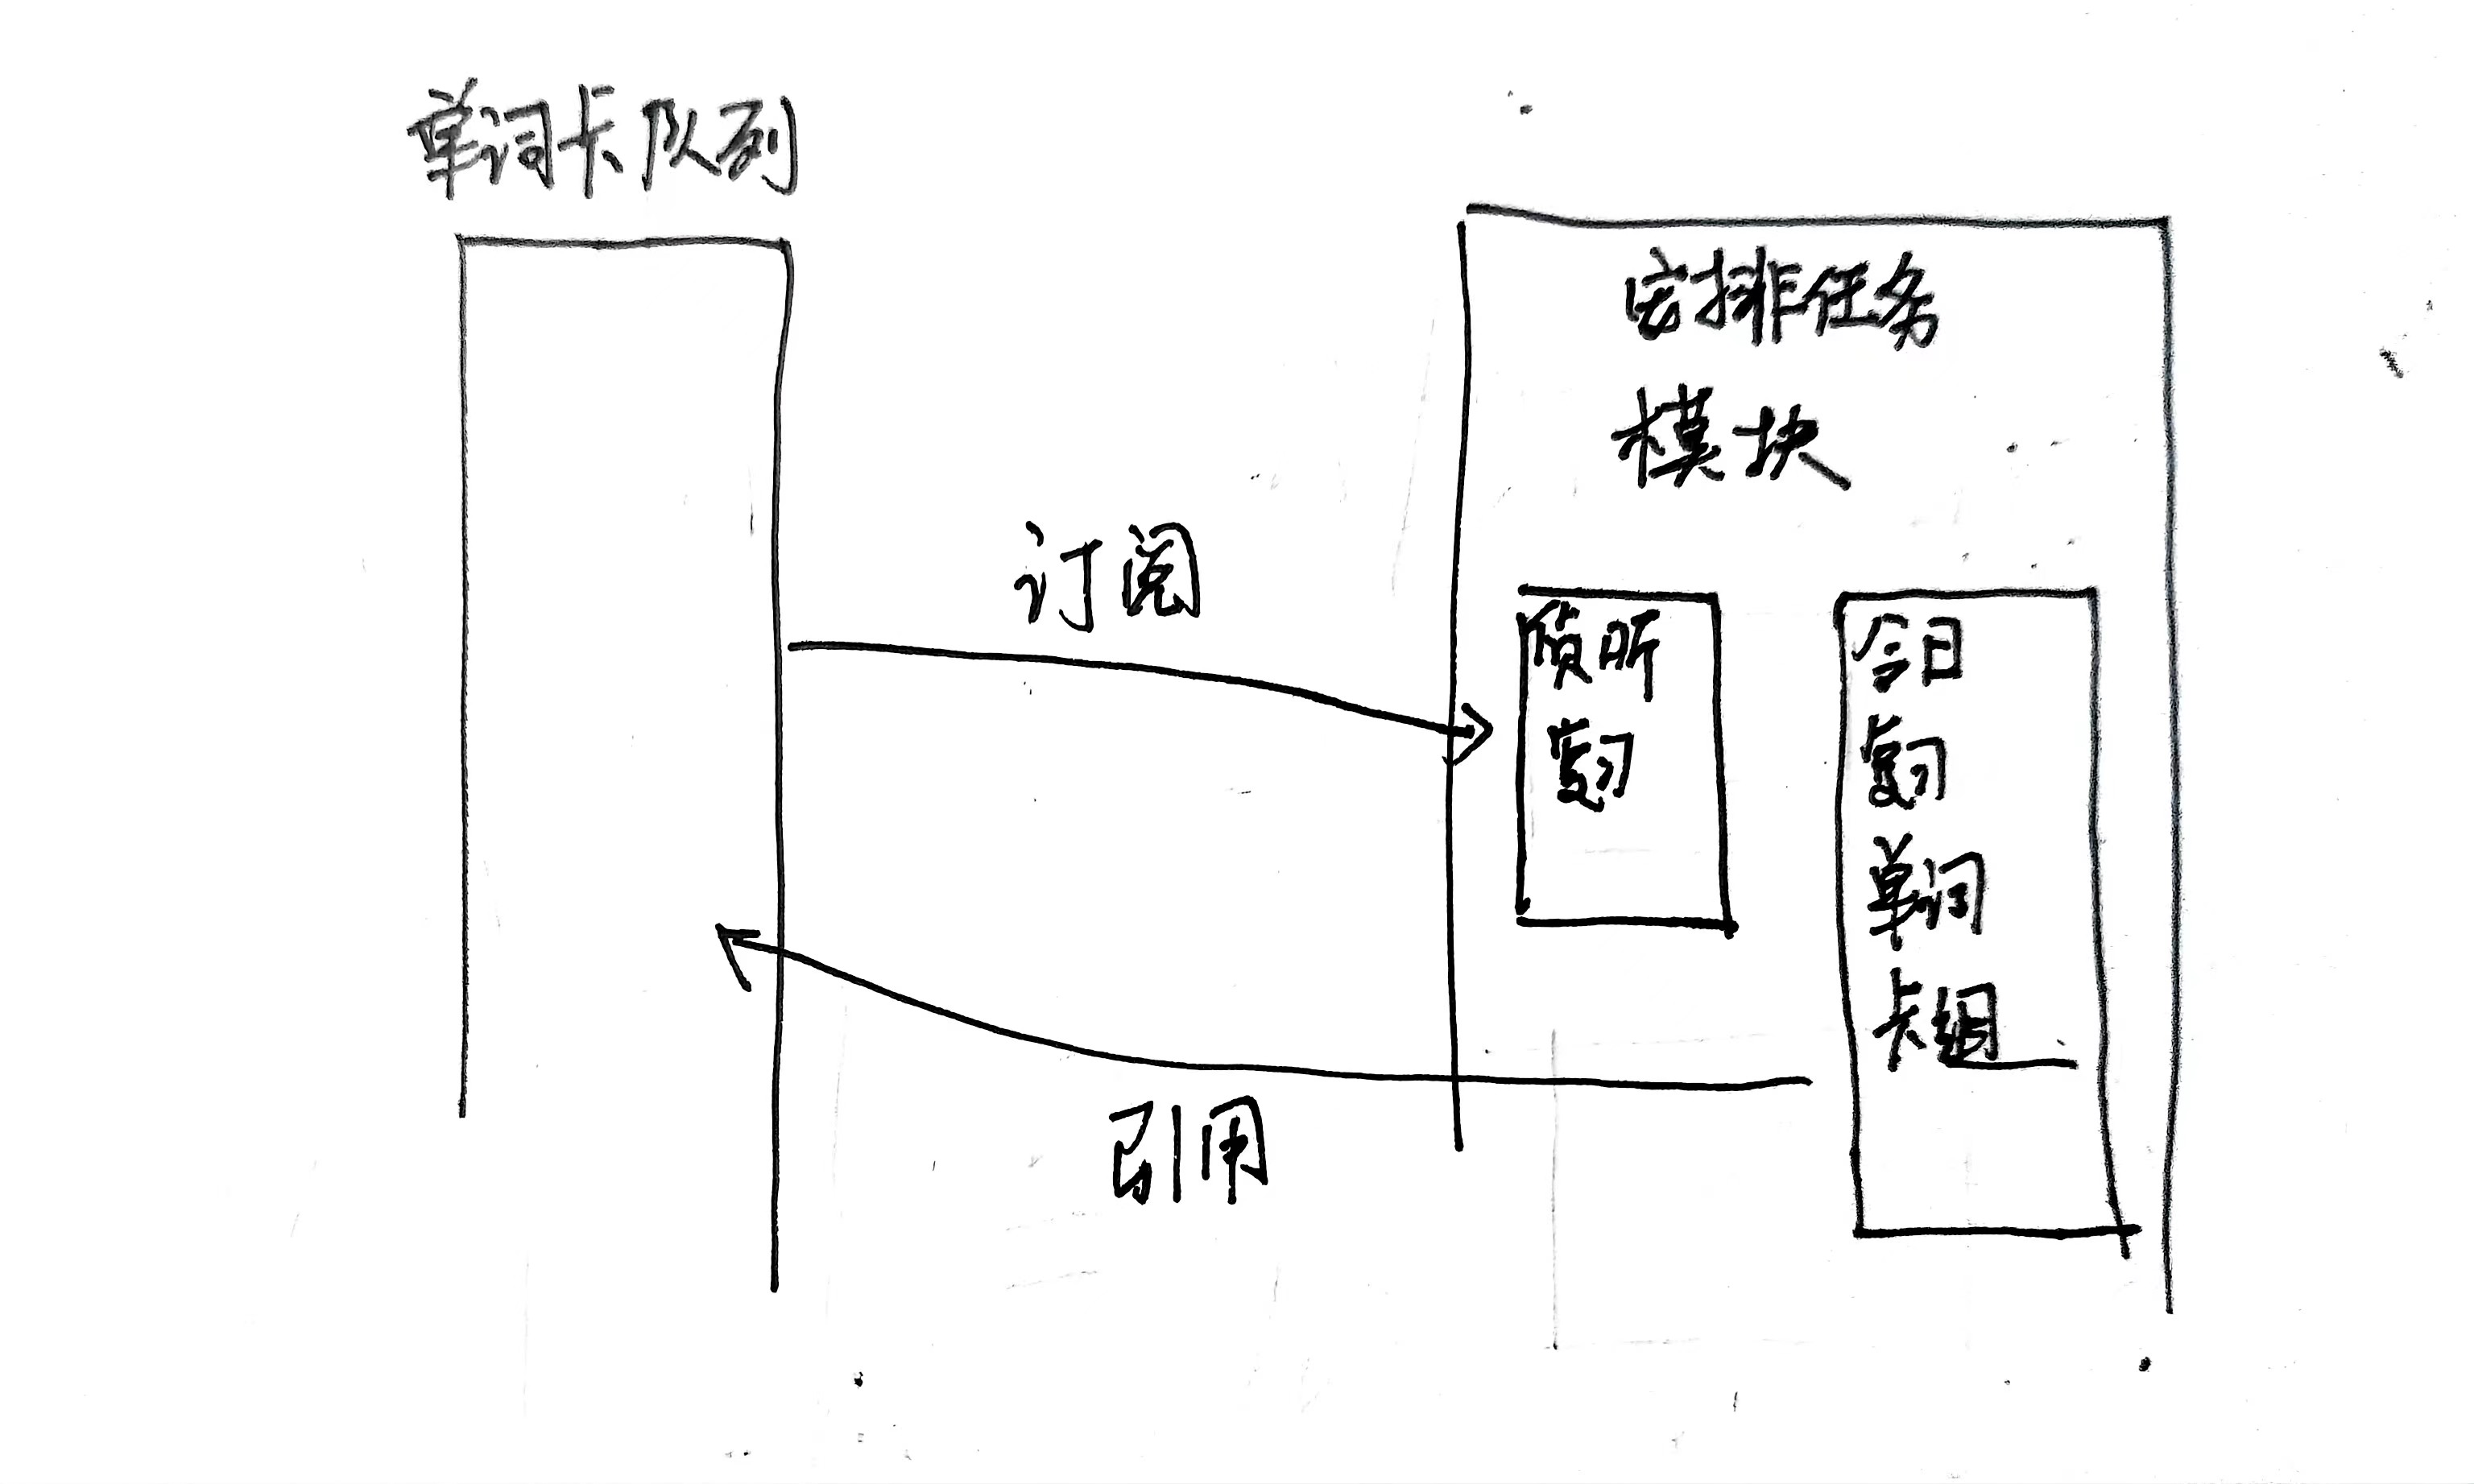 单词卡队列
安排任务
模块
订阅
侦听
复习
今日
复习
单词
卡组
引用